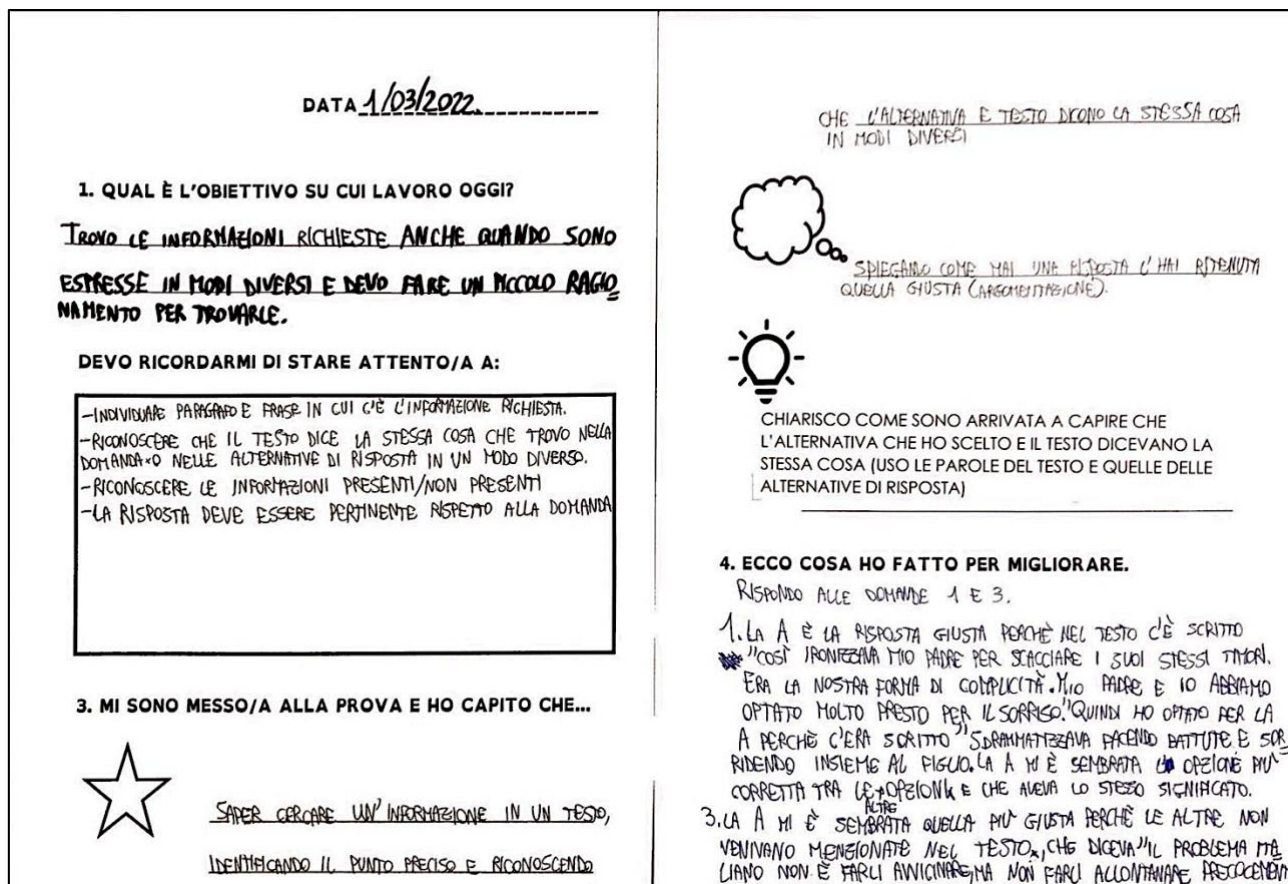 DATA 1/03/2022
1. QUAL È L'OBIETTIVO SU CUI LAVORO OGGI?
TROVO LE INFORMAZIONI RICHIESTE ANCHE QUANDO SONO
ESPRESSE IN MODI DIVERSI E DEVO FARE UN PICCOLO RAGIO
NAMENTO PER TROVARLE.
DEVO RICORDARMI DI STARE ATTENTO/A A:
-INDIVIDUARE PARAGRAFO E FRASE IN CUI C'È L'INFORMAZIONE RICHIESTA.
-RICONOSCERE CHE IL TESTO DICE LA STESSA COSA CHE TROVO NELLA
DOMANDA O NELLE ALTERNATIVE DI RISPOSTA IN UN MODO DIVERSO.
-RICONOSCERE LE INFORMAZIONI PRESENTI/NON PRESENTI
-LA RISPOSTA DEVE ESSERE PERTINENTE RISPETTO ALLA DOMANDA
3. MI SONO MESSO/A ALLA PROVA E HO CAPITO CHE...
SAPER CERCARE UN'INFORMAZIONE IN UN TESTO,
IDENTIFICANDO IL PUNTO PRECISO E RICONOSCENDO
CHE L'ALTERNATIVA E TESTO DICONO LA STESSA COSA
IN MODI DIVERSI
SPIEGANDO COME MAI UNA RISPOSTA L'HAI RITENUTA
QUELLA GIUSTA (ARGOMENTAZIONE).
CHIARISCO COME SONO ARRIVATA A CAPIRE CHE
L'ALTERNATIVA CHE HO SCELTO E IL TESTO DICEVANO LA
STESSA COSA (USO LE PAROLE DEL TESTO E QUELLE DELLE
ALTERNATIVE DI RISPOSTA)
4. ECCO COSA HO FATTO PER MIGLIORARE.
RISPONDO ALLE DOMANDE 1 E 3.
1. LA A È LA RISPOSTA GIUSTA PERCHÈ NEL TESTO C'È SCRITTO
"COSÌ IRONIZZAVA MIO PADRE PER SCACCIARE I SUOI STESSI TIMORI.
ERA LA NOSTRA FORMA DI COMPLICITÀ. MIO PADRE E IO ABBIAMO
OPTATO MOLTO PRESTO PER IL SORRISO." QUINDI HO OPTATO PER LA
A PERCHÈ C'ERA SCRITTO "SDRAMMATIZZAVA FACENDO BATTUTE E SOR
RIDENDO INSIEME AL FIGLIO. LA A MI È SEMBRATA L'OPZIONE PIÙ
CORRETTA TRA LE ALTRE OPZIONI E CHE AVEVA LO STESSO SIGNIFICATO.
3. LA A MI È SEMBRATA QUELLA PIÙ GIUSTA PERCHÈ LE ALTRE NON
VENIVANO MENZIONATE NEL TESTO, CHE DICEVA "IL PROBLEMA ITA
LIANO NON È FARLI AVVICINARE, MA NON FARLI ALLONTANARE PRECOCEMENTE